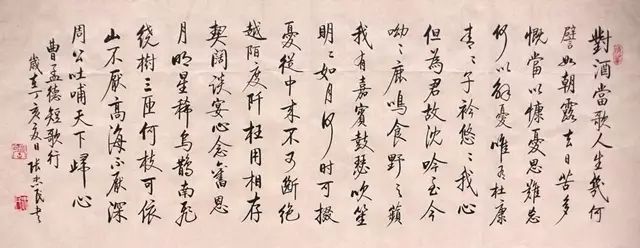 對酒當歌人生幾何
譬如朝露去日苦多
慨當以慷憂思難忘
何以解憂唯有杜康
青〻子衿悠〻我心
但為君故沈吟至今
呦〻鹿鳴食野之蘋
我有嘉賓鼓瑟吹笙
明〻如月何时可掇
憂從中来不可斷絕
越陌度阡枉用相存
契闊談宴心念舊恩
月明星稀烏鵲南飛
繞樹三匝何枝可依
山不厭高海不厭深
周公吐哺天下歸心
曹孟德短歌行
歲在丁亥夏日